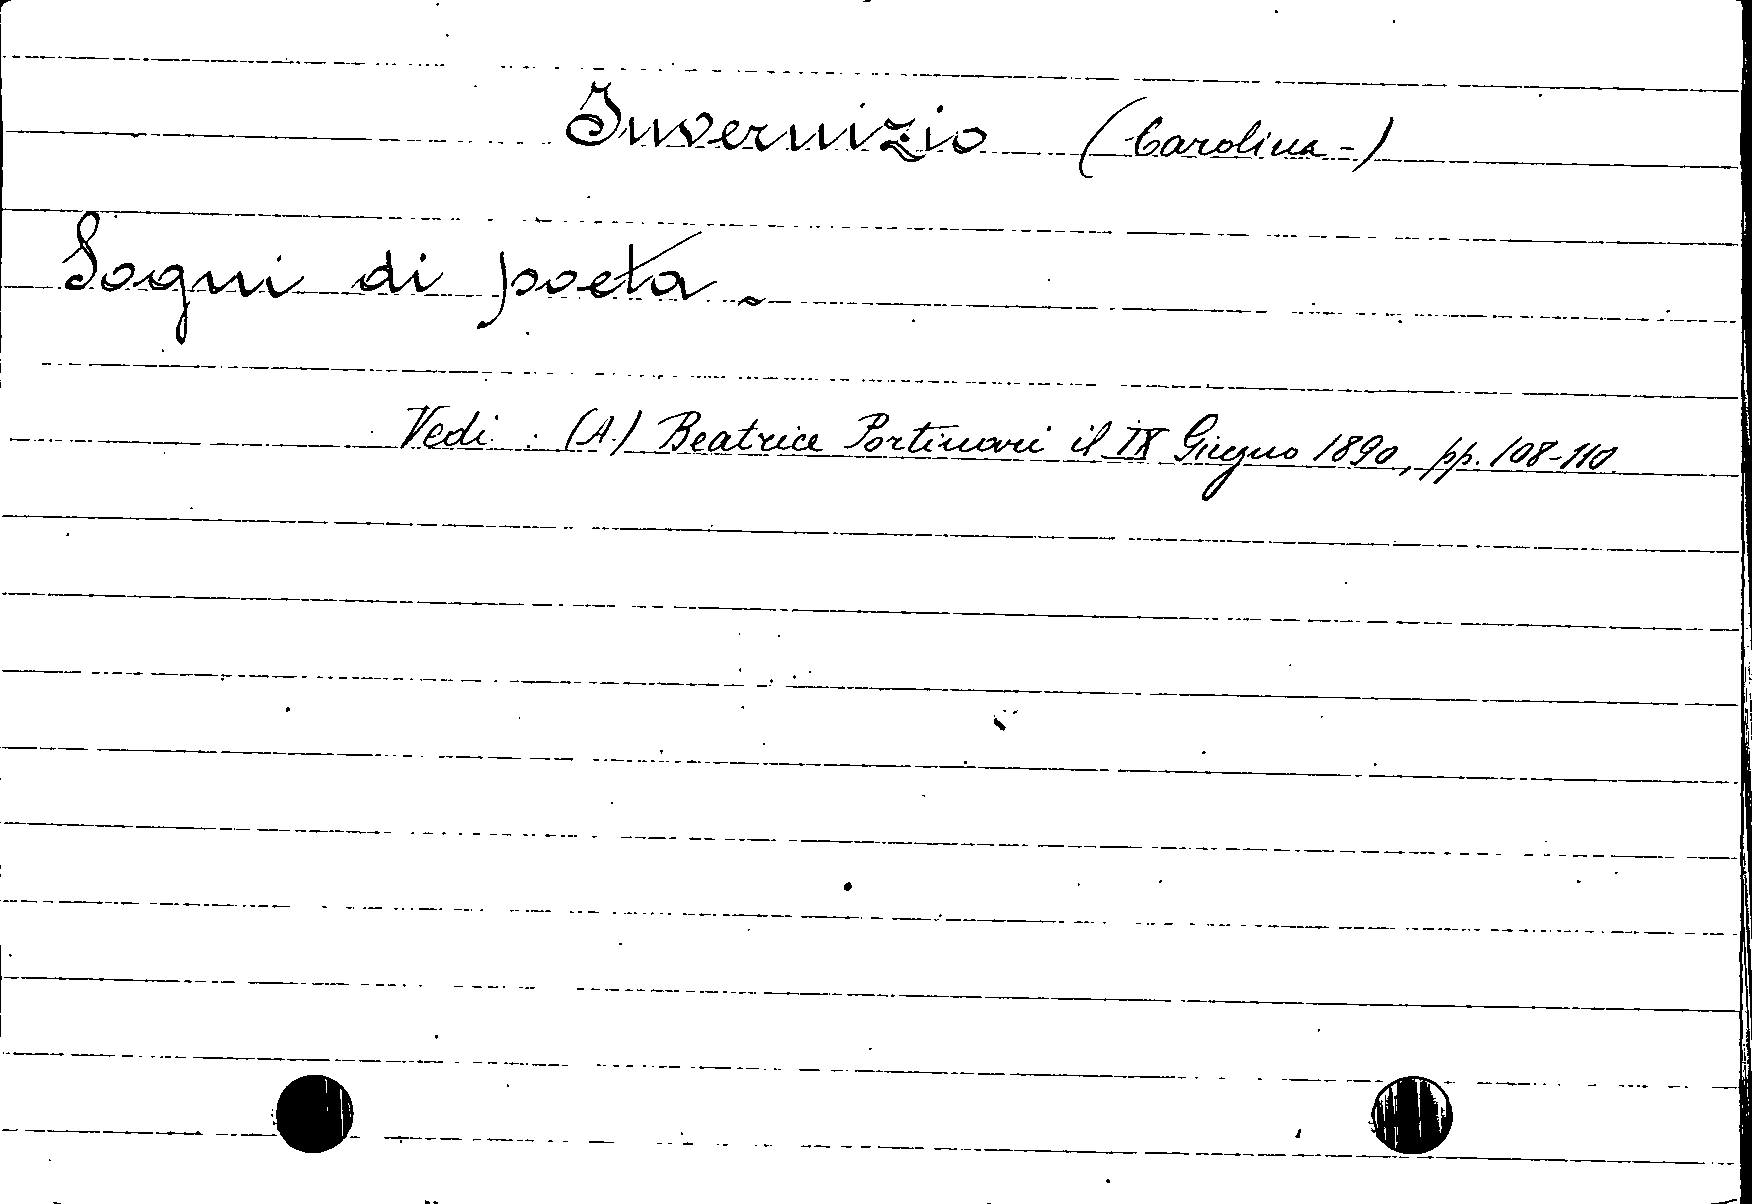 Invernizio (Carolina-)
Sogni di poeta.
Vedi: (A.) Beatrice Portinari il IX Giugno 1890, pp. 108-110.